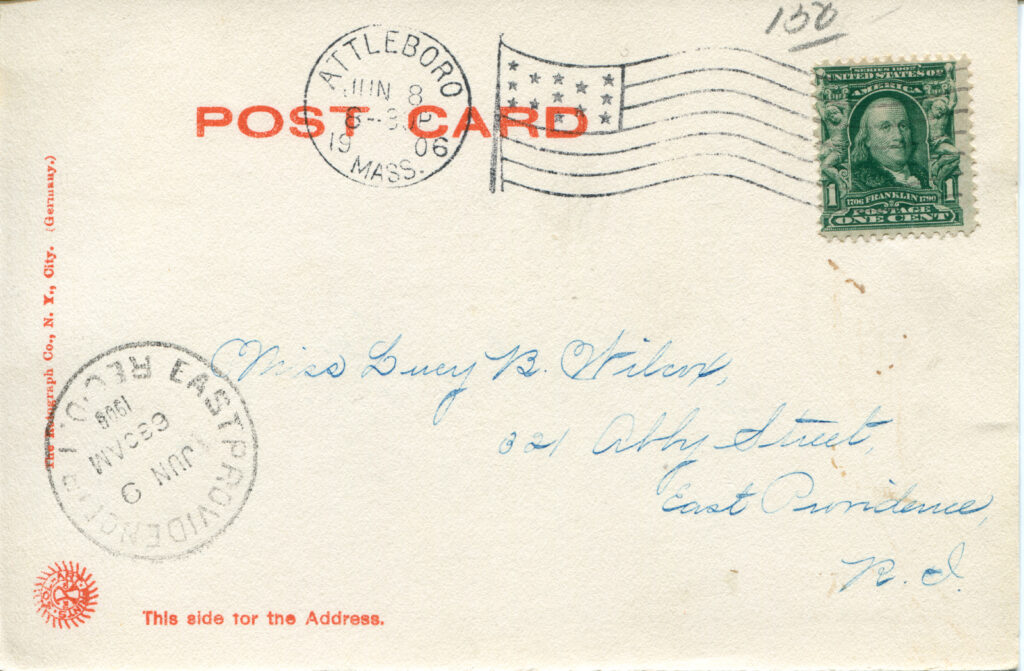 150
ATTLEBORO
JUN 8
19 06
MASS.
POST CARD
SERIES 1902
UNITED STATES OF
AMERICA
1 1
1706 FRANKLIN 1790
POSTAGE
ONE CENT
The Rotograph Co., N. Y., City. (Germany.)
Miss Lucy B. Wilcox,
321 Abby Street,
East Providence,
R. I.
EAST PROVIDENCE R.I.
REC'D.
JUN 9
630AM
1906
SOL-ART
PRINTS
This side for the Address.